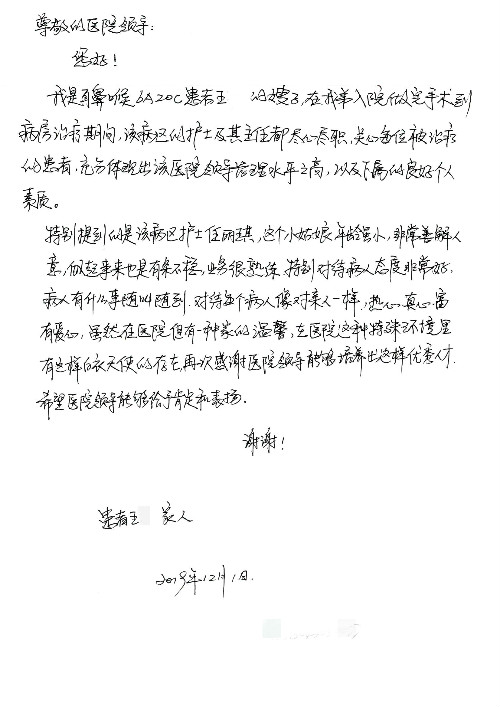 尊敬的医院领导：
您好！
我是耳鼻喉 患者王 的妻子，在我弟入院做完手术到
病房治疗期间，该病区的护士及其主任都尽心尽职，关心每位被治疗
的患者，充分体现出该医院领导管理水平之高，以及下属的良好个人
素质。
特别提到的是该病区护士任丽琪，这个小姑娘年龄虽小，非常善解人
意，做起事来也是有条不稳，业务很熟练，特别对待病人态度非常好，
病人有什么事随叫随到，对待每个病人像对亲人一样，热心、真心、富
有爱心，虽然在医院但有一种家的温馨，在医院这种特殊环境里
有这样白衣天使的存在，再次感谢医院领导能够培养出这样优秀人才，
希望医院领导能够给予肯定和表扬。
谢谢！
患者王 家人
2019年12月1日.